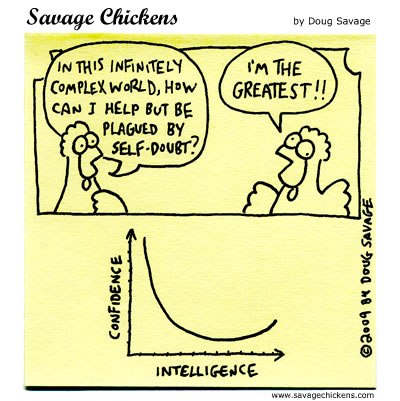 Savage Chickens
by Doug Savage
IN THIS INFINITELY
COMPLEX WORLD, HOW
CAN I HELP BUT BE
PLAGUED BY
SELF-DOUBT?
I'M THE
GREATEST!!
CONFIDENCE
INTELLIGENCE
©2009 BY DOUG SAVAGE
www.savagechickens.com